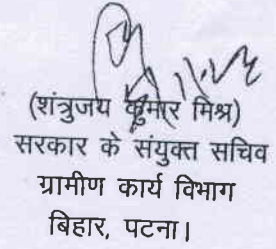 (शंत्रुजय कुमार मिश्र)
सरकार के संयुक्त सचिव
ग्रामीण कार्य विभाग
बिहार, पटना।